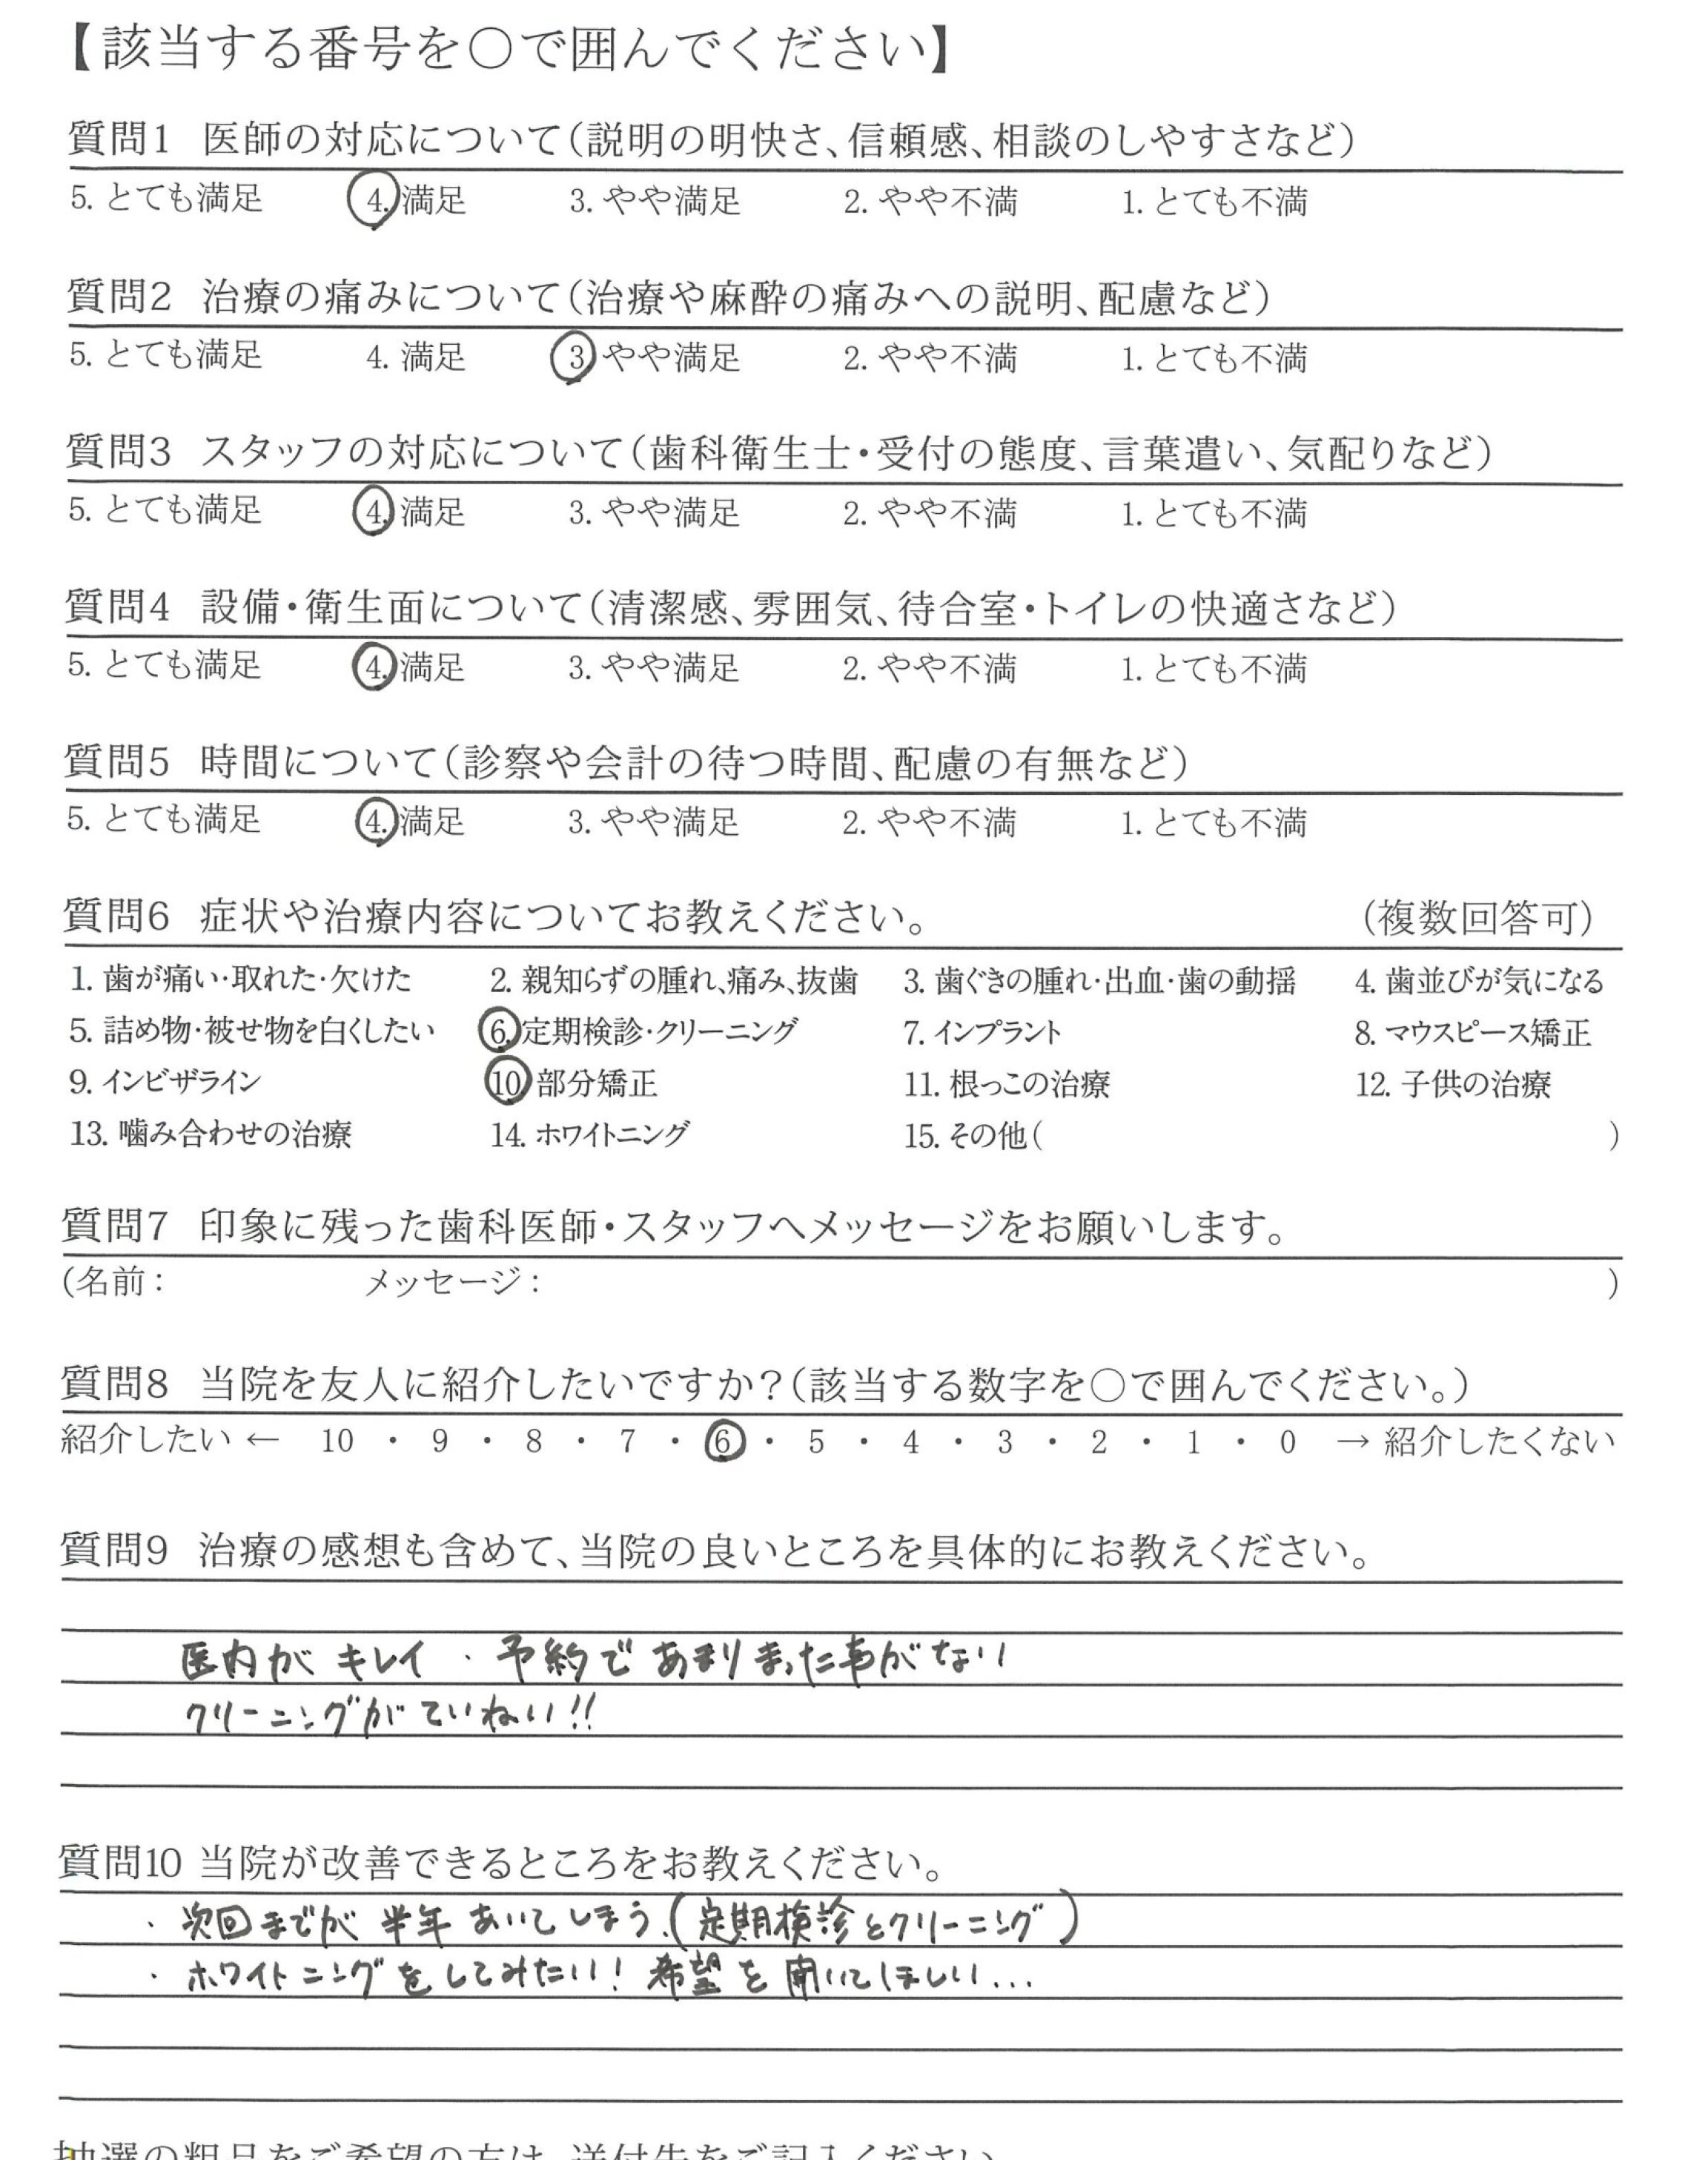 【該当する番号を○で囲んでください】
質問1 医師の対応について（説明の明快さ、信頼感、相談のしやすさなど）
5. とても満足 4. 満足 3. やや満足 2. やや不満 1. とても不満
質問2 治療の痛みについて（治療や麻酔の痛みへの説明、配慮など）
5. とても満足 4. 満足 3 やや満足 2. やや不満 1. とても不満
質問3 スタッフの対応について（歯科衛生士・受付の態度、言葉遣い、気配りなど）
5. とても満足 4. 満足 3. やや満足 2. やや不満 1. とても不満
質問4 設備・衛生面について（清潔感、雰囲気、待合室・トイレの快適さなど）
5. とても満足 4. 満足 3. やや満足 2. やや不満 1. とても不満
質問5 時間について（診察や会計の待つ時間、配慮の有無など）
5. とても満足 4. 満足 3. やや満足 2. やや不満 1. とても不満
質問6 症状や治療内容についてお教えください。 （複数回答可）
1. 歯が痛い・取れた・欠けた 2. 親知らずの腫れ、痛み、抜歯 3. 歯ぐきの腫れ・出血・歯の動揺 4. 歯並びが気になる
5. 詰め物・被せ物を白くしたい 6. 定期検診・クリーニング 7. インプラント 8. マウスピース矯正
9. インビザライン 10 部分矯正 11. 根っこの治療 12. 子供の治療
13. 噛み合わせの治療 14. ホワイトニング 15. その他（ ）
質問7 印象に残った歯科医師・スタッフへメッセージをお願いします。
（名前： メッセージ： ）
質問8 当院を友人に紹介したいですか？（該当する数字を○で囲んでください。）
紹介したい ← 10 ・ 9 ・ 8 ・ 7 ・ 6 ・ 5 ・ 4 ・ 3 ・ 2 ・ 1 ・ 0 → 紹介したくない
質問9 治療の感想も含めて、当院の良いところを具体的にお教えください。
医内がキレイ ・ 予約であまりまった事がない
クリーニングがていねい!!
質問10 当院が改善できるところをお教えください。
・ 次回までが 半年 あいてしまう.(定期検診とクリーニング)
・ ホワイトニングをしてみたい! 希望を聞いてほしい...
抽選の粗品をご希望の方は、送付先をご記入ください